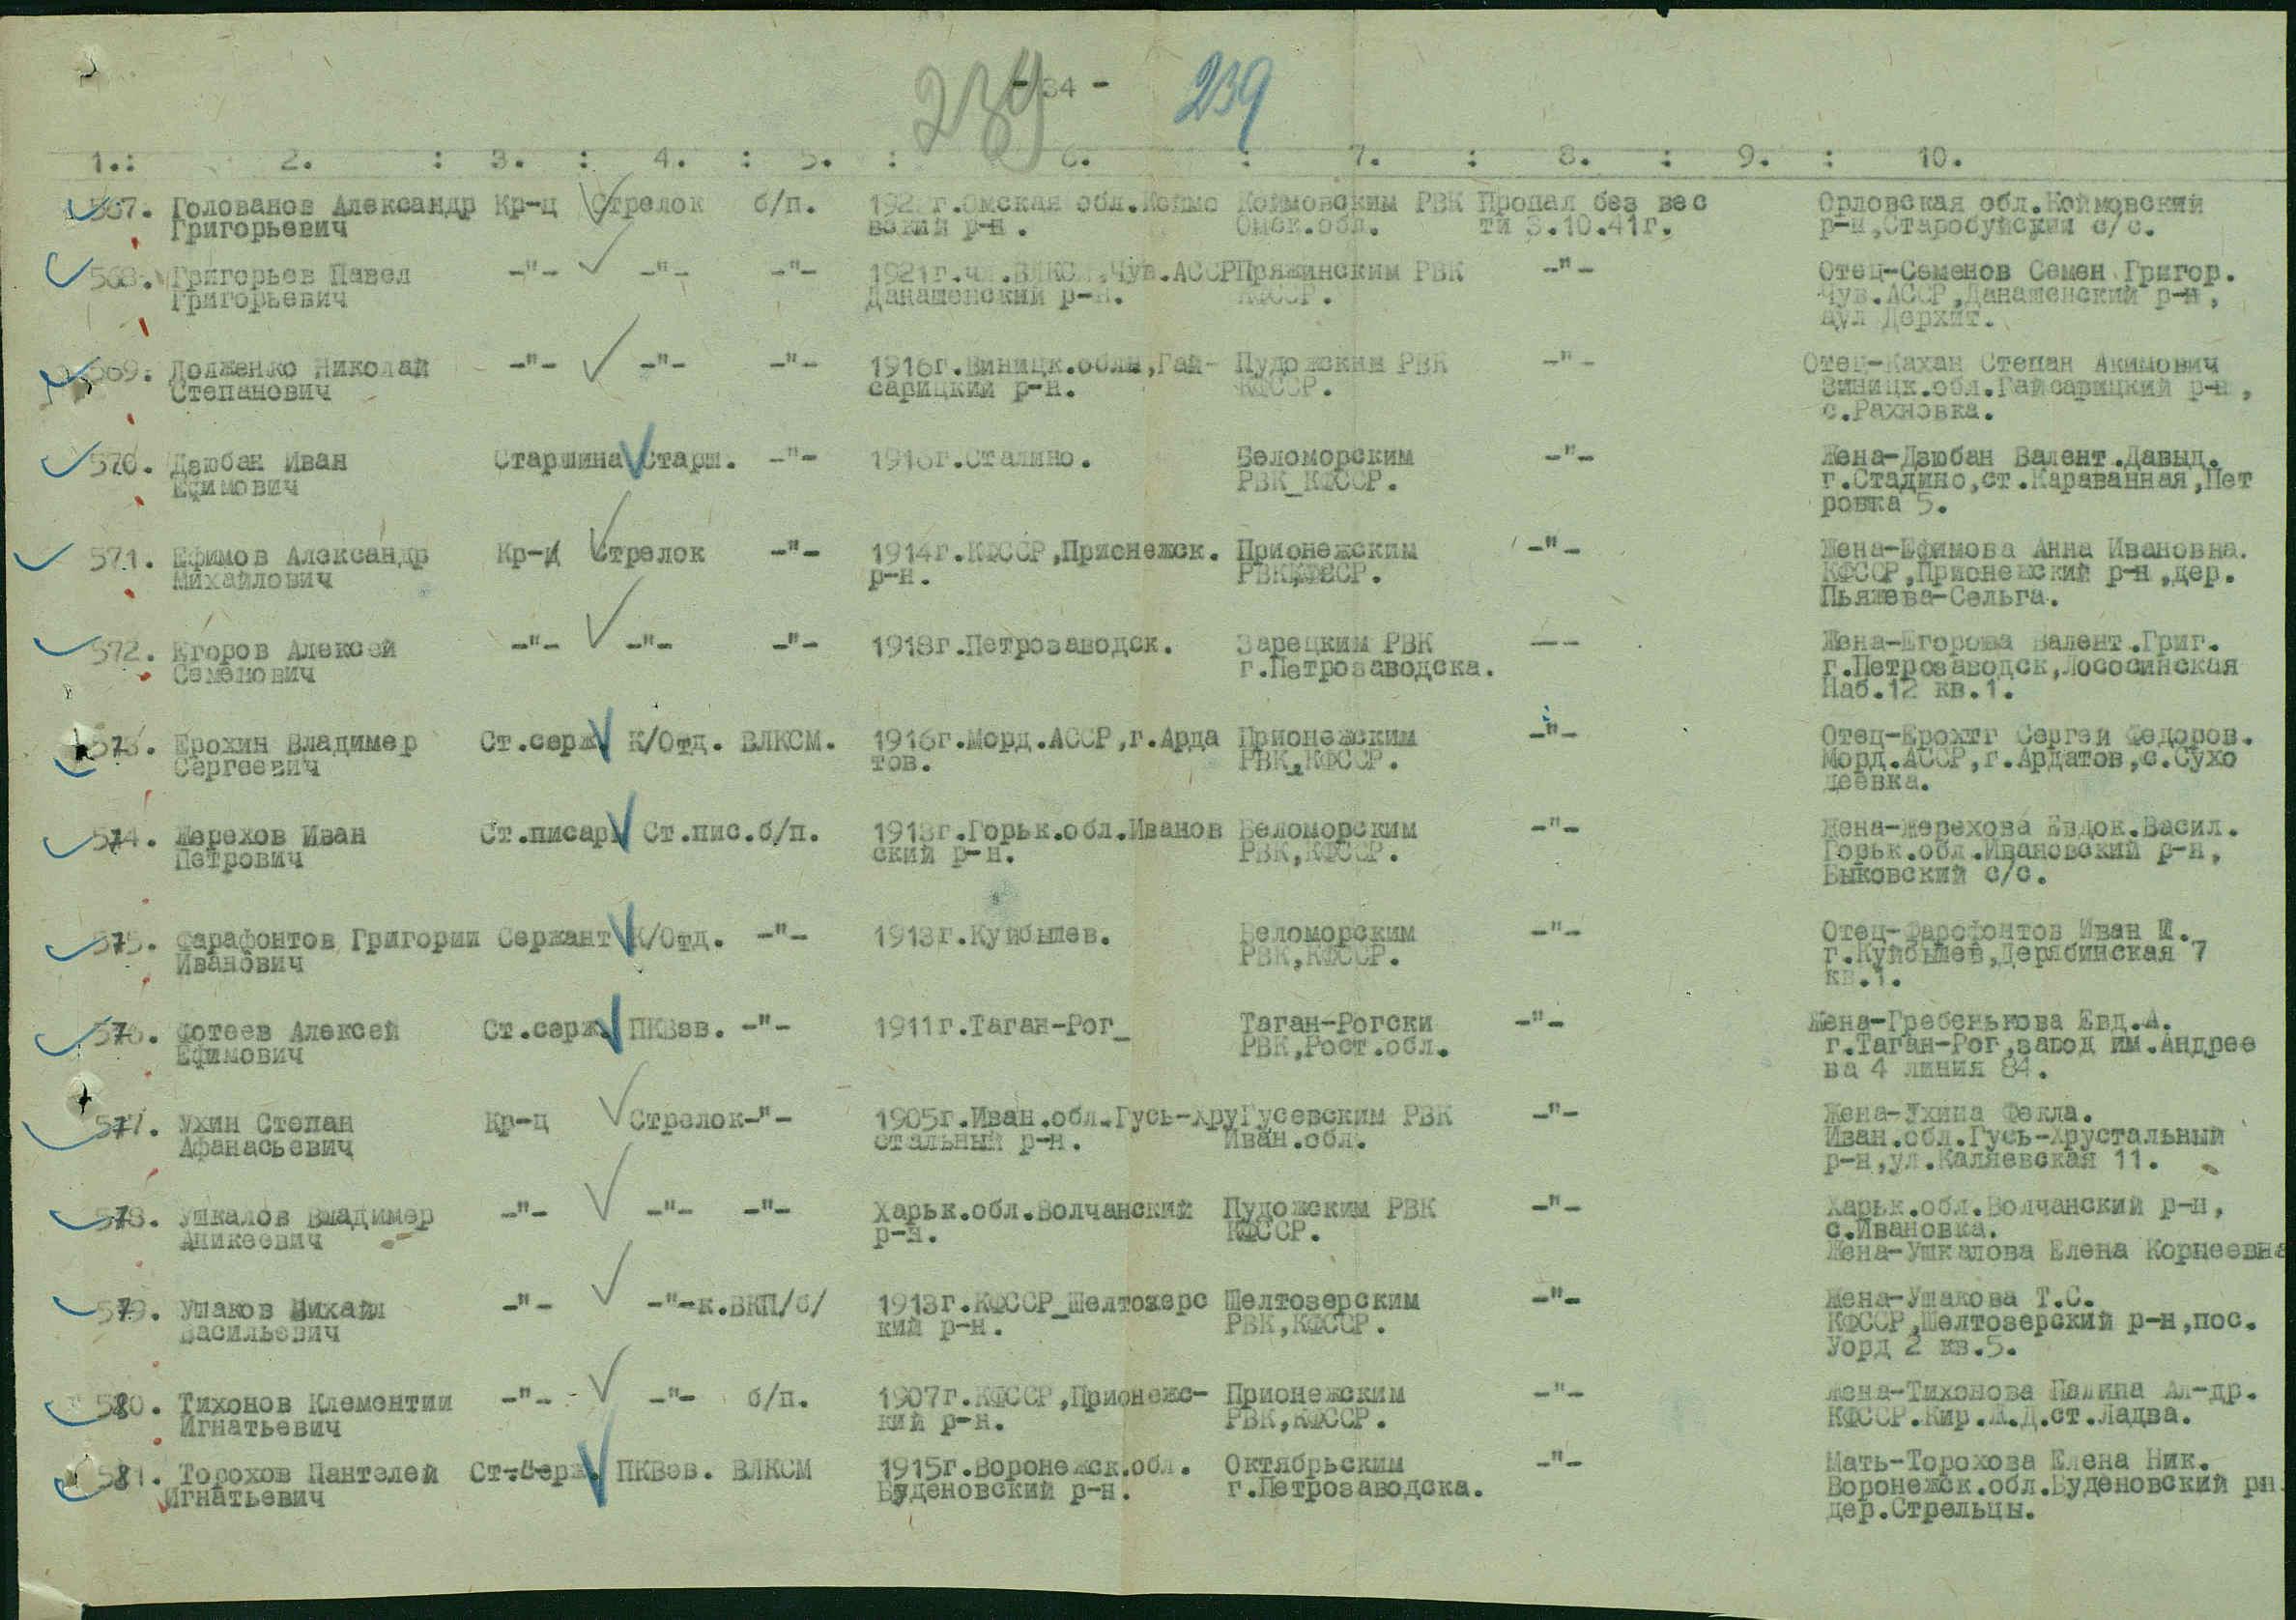 239 - 34 - 239
1.: 2. : 3. : 4. : 5. : 6. : 7. : 8. : 9. : 10.
567. Голованов Александр Кр-ц Стрелок б/п. Омская обл. Коймовским РВК Пропал без вес Орловская обл.Коймовский
Григорьевич вский р-н. Омск.обл. ти 3.10.41г. р-н,Старобуйский с/с.
568. Григорьев Павел -"- -"- -"- 1921г. Чув.АССР Пряжинским РВК -"- Отец-Семенов Семен Григор.
Григорьевич Данашенский р-н. КФССР. Чув.АССР,Данашенский р-н,
аул Дерхит.
569. Долженко Николай -"- -"- -"- 1916г.Виницк.облы,Гай- Пудожским РВК -"- Отец-Кахан Степан Акимович
Степанович сарицкий р-н. КФССР. Виницк.обл.Гайсарицкий р-н,
с.Рахновка.
570. Дзюбан Иван Старшина Старш. -"- 1916г.Сталино. Беломорским -"- Жена-Дзюбан Валент.Давыд.
Ефимович РВК_КФССР. г.Стадино,ст.Караванная,Пет
ровка 5.
571. Ефимов Александр Кр-ц Стрелок -"- 1914г.КФССР,Прионежск. Прионежским -"- Жена-Ефимова Анна Ивановна.
Михайлович р-н. КФССР,Прионежский р-н,дер.
Пьяжева-Сельга.
572. Егоров Алексей -"- -"- -"- 1918г.Петрозаводск. Зарецким РВК -- Жена-Егорова Валент.Григ.
Семенович г.Петрозаводска. г.Петрозаводск,Лососинская
Наб.12 кв.1.
573. Ерохин Владимер Ст.серж. К/Отд. ВЛКСМ. 1916г.Морд.АССР,г.Арда Прионежским -"- Отец-Ерохтг Сергей Федоров.
Сергеевич тов. РВК,КФССР. Морд.АССР,г.Ардатов,с.Сухо
деевка.
574. Жерехов Иван Ст.писарь Ст.пис.б/п. 1913г.Горьк.обл.Иванов Беломорским -"- Жена-Жерехова Евдок.Васил.
Петрович ский р-н. РВК,КФССР. Горьк.обл.Ивановский р-н,
Быковский с/с.
575. Фарафонтов Григории Сержант К/Отд. -"- 1913г.Куйбышев. Беломорским -"- Отец-Фарофонтов Иван И.
Иванович РВК,КФССР. г.Куйбышев,Дерябинская 7
кв.1.
576. Фотеев Алексей Ст.серж. ПКВзв. -"- 1911г.Таган-Рог_ Таган-Рогски -"- Жена-Гребенькова Евд.А.
Ефимович РВК,Рост.обл. г.Таган-Рог,завод им.Андрее
ва 4 линия 84.
577. Ухин Степан Кр-ц Стрелок-"- 1905г.Иван.обл.Гусь-Хру Гусевским РВК -"- Жена-Ухина Фекла.
Афанасьевич стальный р-н. Иван.обл. Иван.обл.Гусь-Хрустальный
р-н,ул.Каляевская 11.
578. Ушкалов Владимер -"- -"- -"- Харьк.обл.Волчанский Пудожским РВК -"- Харьк.обл.Волчанский р-н,
Аникеевич р-н. КФССР. с.Ивановка.
Жена-Ушкалова Елена Корнеевна
579. Ушаков Михайл -"- -"-к.ВКП/б/ 1913г.КФССР_Шелтозерс Шелтозерским -"- Жена-Ушакова Т.С.
Васильевич кий р-н. РВК,КФССР. КФССР,Шелтозерский р-н,пос.
Уорд 2 кв.5.
580. Тихонов Клементии -"- -"- б/п. 1907г.КФССР,Прионежс- Прионежским -"- Жена-Тихонова Палина Ал-др.
Игнатьевич кий р-н. РВК,КФССР. КФССР.Кир.Ж.Д.ст.Ладва.
581. Торохов Пантелей Ст.серж. ПКВзв. ВЛКСМ 1915г.Воронежск.обл. Октябрьским -"- Мать-Торохова Елена Ник.
Игнатьевич Буденовский р-н. г.Петрозаводска. Воронежск.обл.Буденовский рн.
дер.Стрельцы.